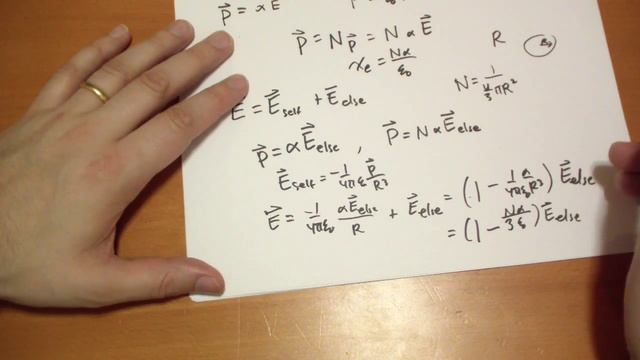 p⃗ = αE⃗
P⃗ = Np⃗ = NαE⃗
χₑ = Nα/ε₀
R
N = 1/(4/3 πR²)
E⃗ = E⃗self + E⃗else
p⃗ = αE⃗else , P⃗ = NαE⃗else
E⃗self = -1/(4πε₀) p⃗/R³
E⃗ = -1/(4πε₀) αE⃗else/R + E⃗else = (1 - 1/(4πε₀) α/R³) E⃗else
= (1 - Nα/(3ε₀)) E⃗else